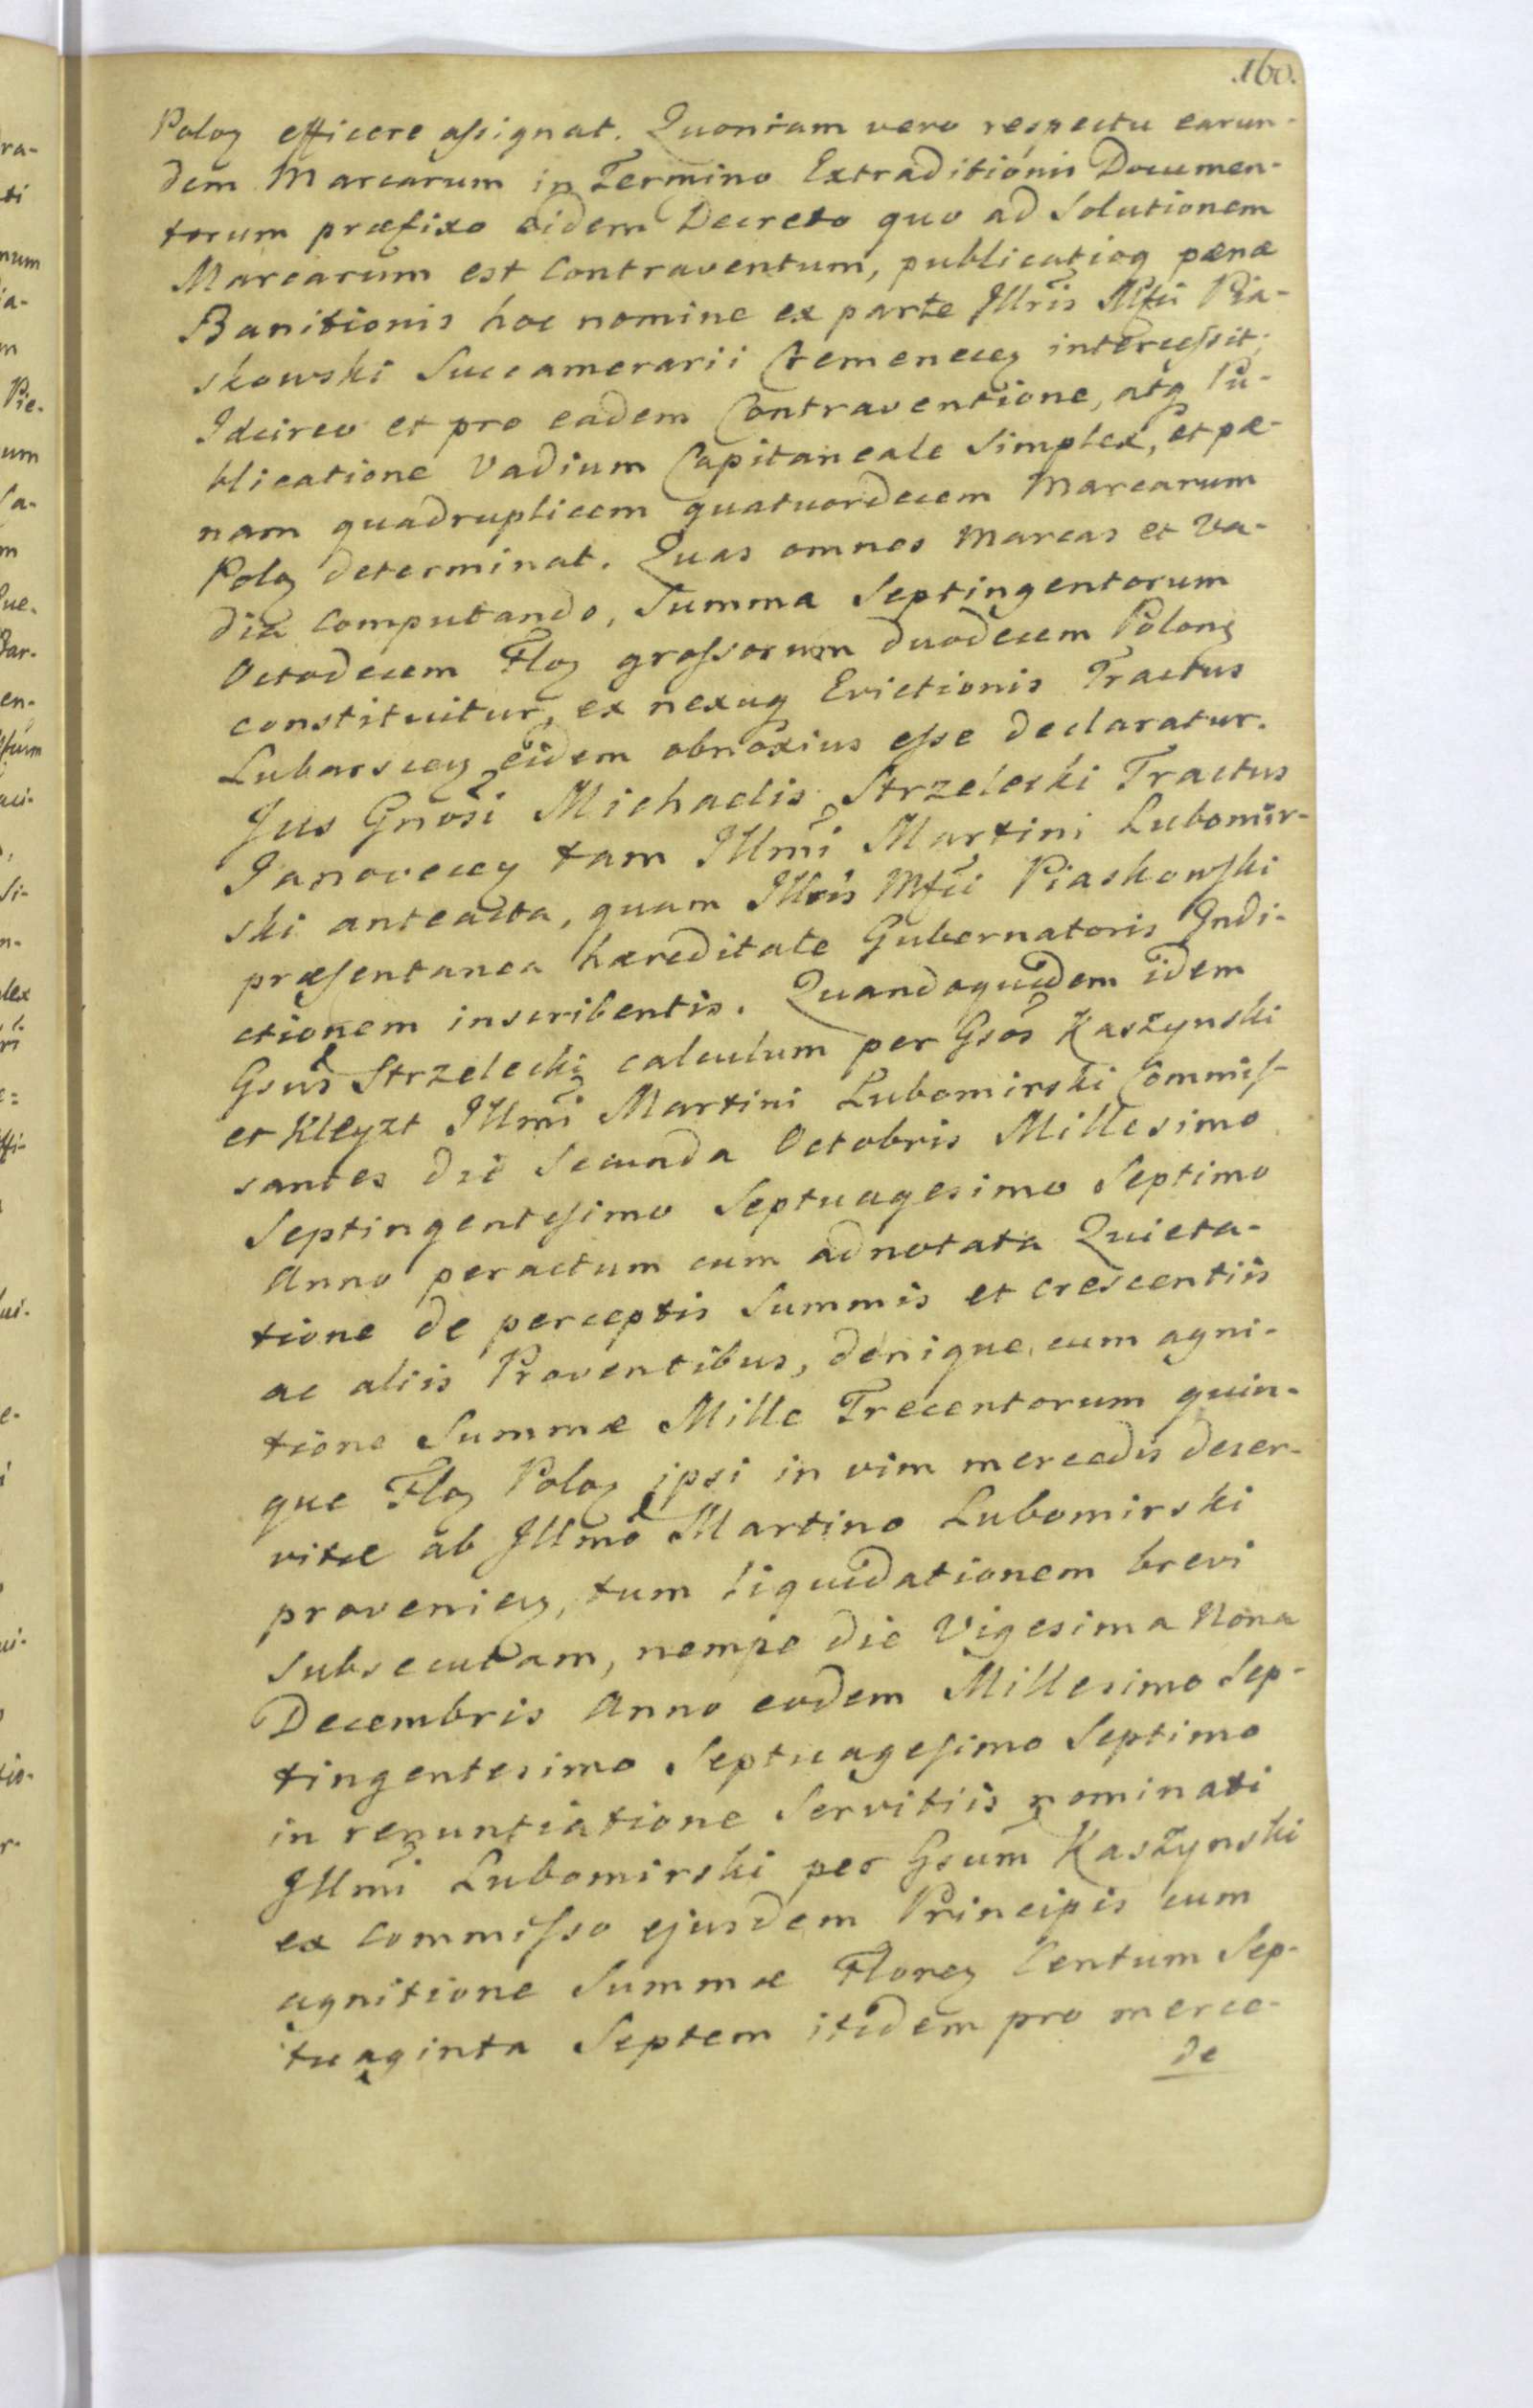 .160.
Polog efficere assignat. Quoniam vero respectu earun-
dem Marcarum in Termino Extraditionis Documen-
torum præfixo eidem Decreto quo ad Solutionem
Marcarum est Contraventum, publicatioq pænæ
Banitionis hoc nomine ex parte Jllris Mfci Pia-
skowski Succamerarii Cremenecez intercessit;
Idcirco et pro eadem Contraventione, atq Pu-
blicatione Vadium Capitaneale Simplex, et pæ-
nam quadruplicem quatuordecem Marcarum
Polog determinat. Quas omnes Marcas et Va-
dia Computando, Summa Septingentorum
Octodecem Flog grossorum duodecem Polong
constituitur, ex nexuq Evictionis Tractus
Lubarscez eidem obnoxius esse declaratur.
Jus Gnosi Michaelis Strzelecki Tractus
Janovecez tam Jllmi Martini Lubomir-
ski anteacta, quam Jllris Mfci Piaskowski
præsentanea hæreditate Gubernatoris Indi-
ctionem inscribentis. Quandoquidem idem
Gsus Strzelecki calculum per Gsos Kaszynski
et Kleyzt Jllmi Martini Lubomirski Commis-
santes die Secunda Octobris Millesimo
Septingentesimo Septuagesimo Septimo
Anno peractum cum adnotata Quieta-
tione de perceptis Summis et crescentiis
ac aliis Proventibus, denique cum agni-
tione Summæ Mille Trecentorum quin-
que Flog Polog ipsi in vim mercedis deser-
vitæ ab Jllmo Martino Lubomirski
provenicz, tum liquidationem brevi
subsecutam, nempe die Vigesima Nona
Decembris Anno eodem Millesimo Sep-
tingentesimo Septuagesimo Septimo
in renuntiatione Servitiis nominati
Jllmi Lubomirski per Gsum Kaszynski
ex commisso ejusdem Principis cum
agnitione Summæ Floreg Centum Sep-
tuaginta Septem itidem pro merce-
de